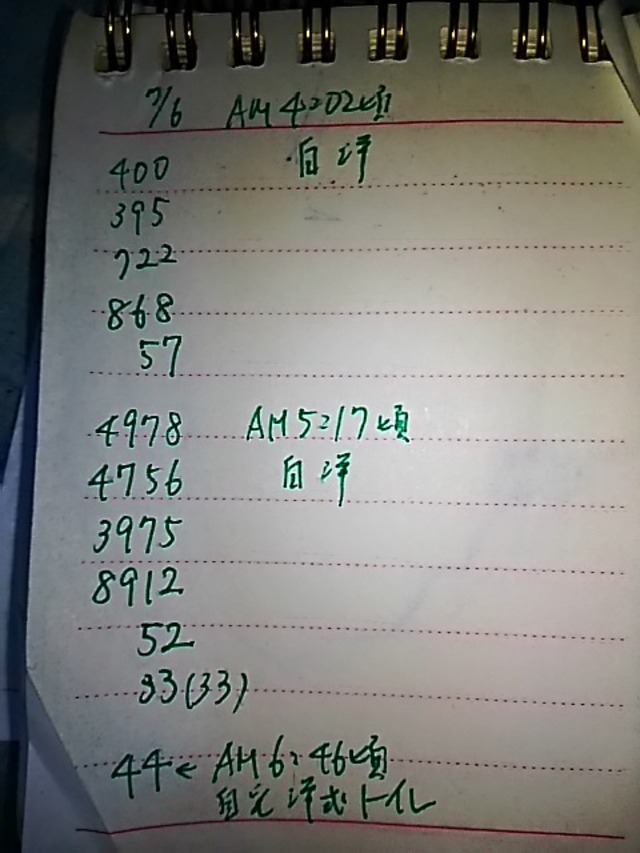 7/6 AM4:02頃
400 自洋
395
722
868
57
4978 AM5:17頃
4756 自洋
3975
8912
52
33(33)
44← AM6:46頃
自宅洋式トイレ